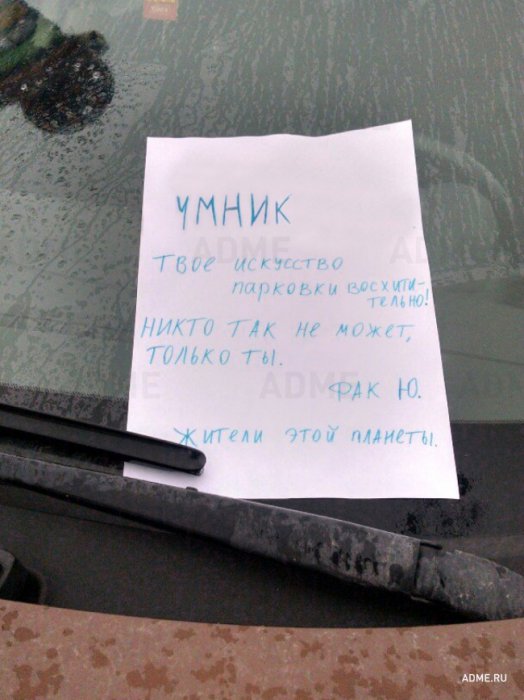 УМНИК
ТВОЕ ИСКУССТВО
ПАРКОВКИ ВОСХИТИ-
ТЕЛЬНО!
НИКТО ТАК НЕ МОЖЕТ,
ТОЛЬКО ТЫ.
ФАК Ю.
ЖИТЕЛИ ЭТОЙ ПЛАНЕТЫ.
ADME
ADME
ADME.RU